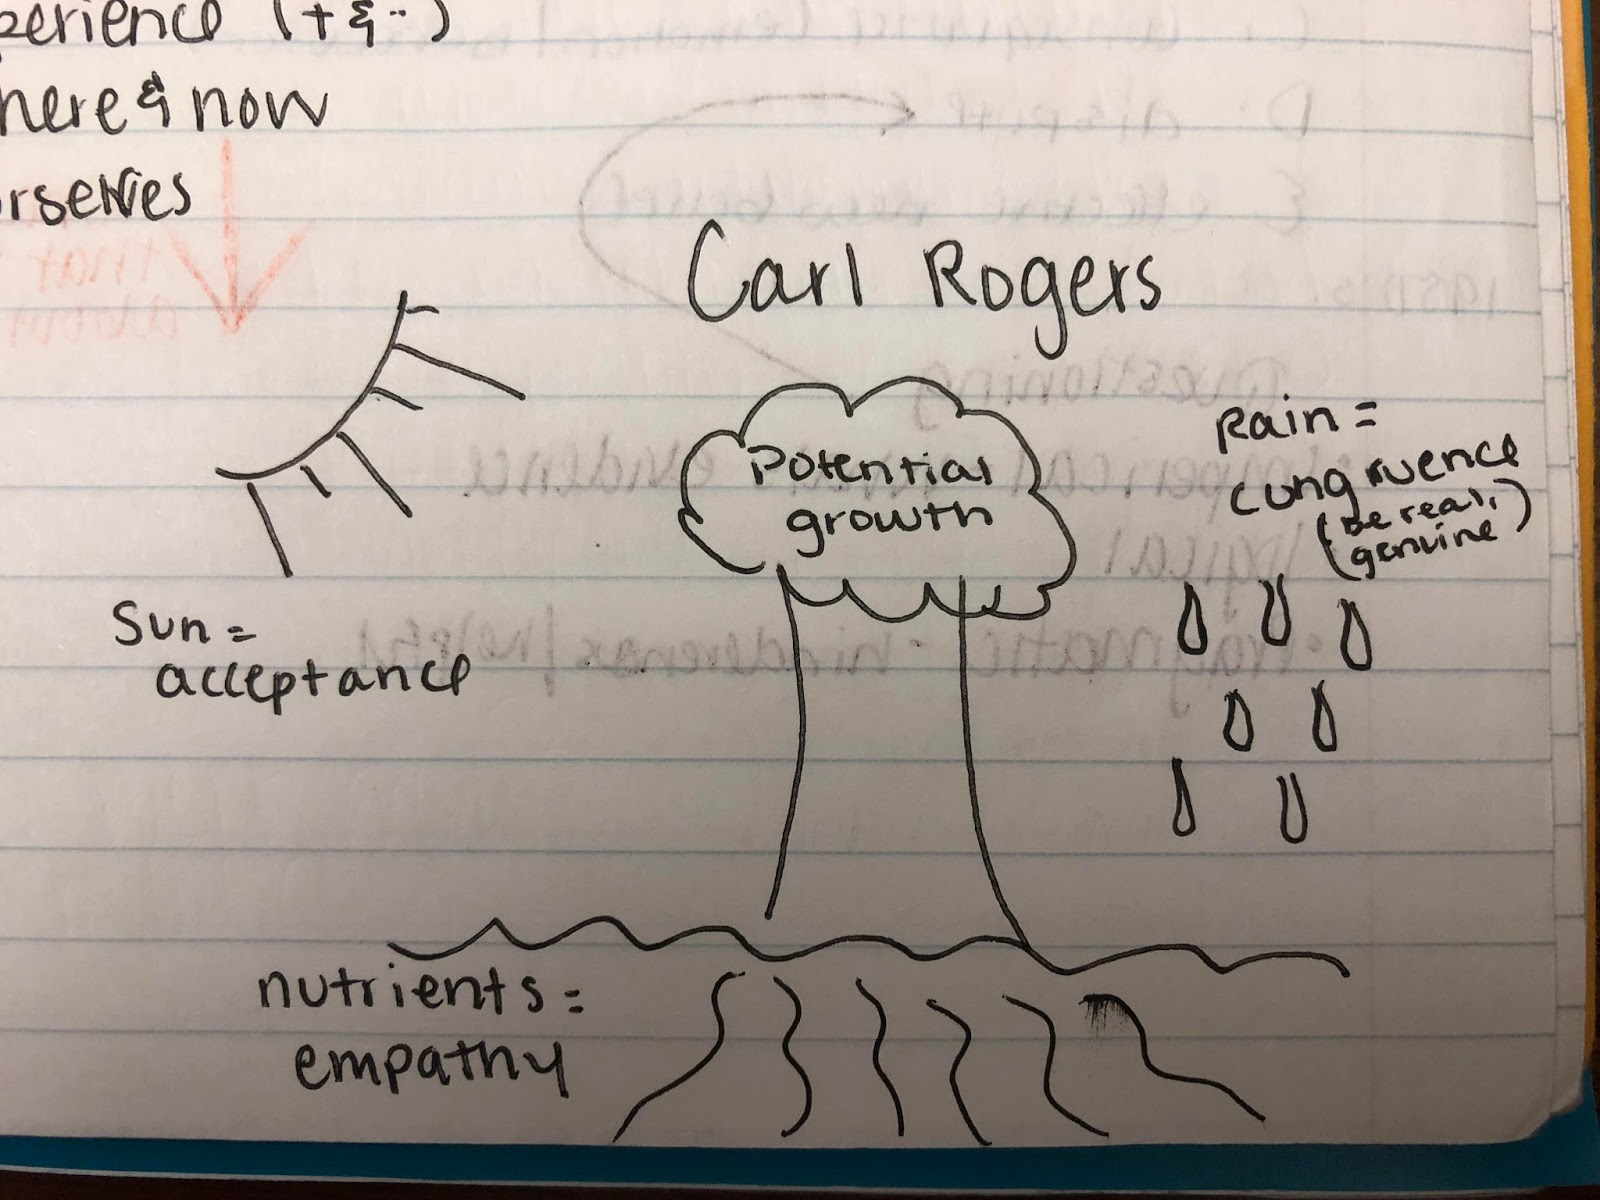 perience (+ & -)
here & now
urselves
Carl Rogers
Potential
growth
Rain =
congruence
(be real,
genuine)
Sun =
acceptance
nutrients =
empathy